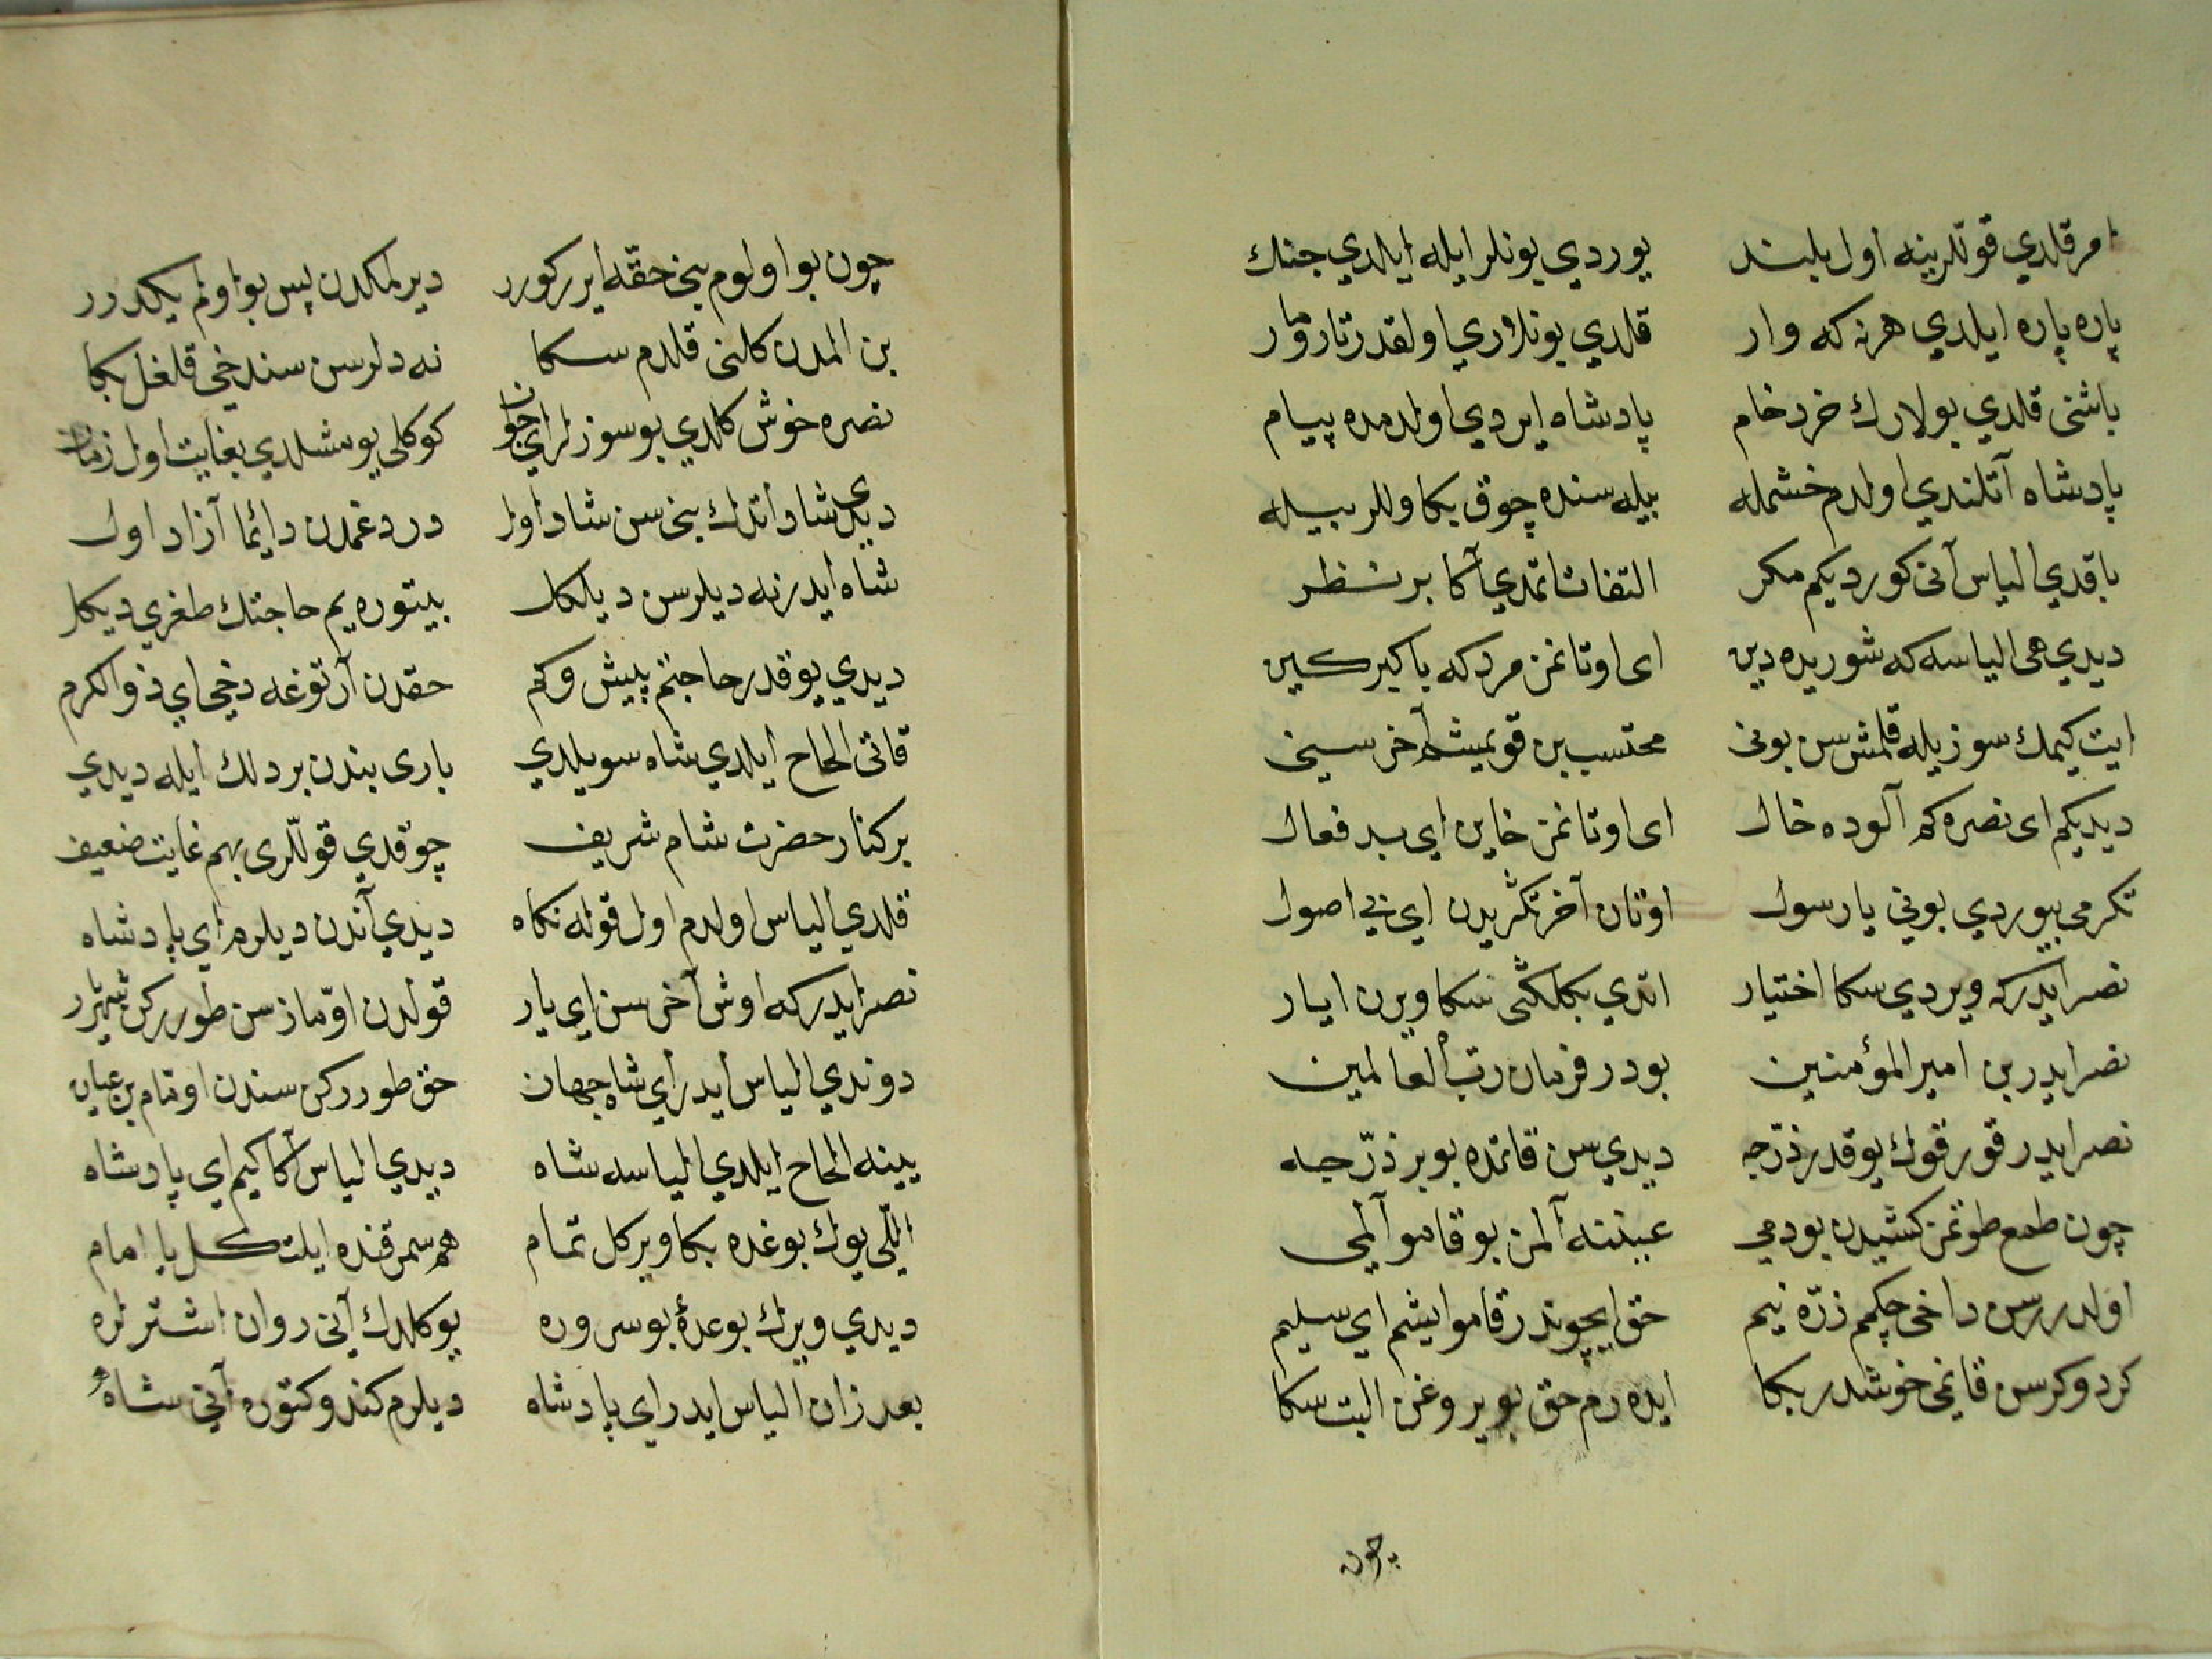 امر قلدي قوللرينه اول بلند يوردي يونلر ايله ايلدي جنك
پاره پاره ايلدي هرنه كه وار قلدي يونلاري اولقدر تارومار
باشنى قلدي بولارك خرد خام پادشاه ايردي اولدمده پيام
پادشاه آتلندي اولدم خشمله بيله سنده چوق بكاوللر بيله
باقدي الياس آنى كورديكم مكر التفات اتمدي آكا بر نظر
ديدي هى الياسه كه شوريده دين اى اوتانمز مردكه باكبر كين
ايت كيمك سوزيله قلمش سن بونى محتسب بن قويمشم آخر سينى
ديديكم اى نصره كم آلوده خال اى اوتانمز خاين اي بد فعال
تكرمى بيوردي بونى يا رسول اوتان آخر تكريدن اي بي اصول
نصر ايدركه ويردي سكا اختيار اتدي بكلكى سكا ويرن ايار
نصر ايدر بن امير المؤمنين بودر فرمان رب العالمين
نصر ايدر قورقوك يوقدر ذرّجه ديدي سن قاتمده بوبر ذرّجه
چون طمع طوتمز كشيدن بودمي عينته آلمز بو قامو آلمى
اولدررسن داخى چكم ذرّه نيم حق ايچوندر قامو ايشم اي سليم
كردوكرسن قانمى خوشدر بكا ايده رم حق بويروغن البت سكا
چون
چون بو اولوم بنى حقه ايرركورر ديرلمكدن پس بو اولم يكدرر
بن المدن كلنى قلدم سكا نه دلرسن سندخى قلغل بكا
نصره خوش كلدي بوسوزلر اي جوان كوكلى يومشلدي بغايت اول زمان
ديدى شاد اتدك بنى سن شاد اول درد غمدن دايما آزاد اول
شاه ايدر نه ديلرسن ديلكل بيتوره يم حاجتك طغري ديكل
ديدي يوقدر حاجتم بيش وكم حقدن آرتوغه دخى اي ذو الكرم
قاتى الحاح ايلدي شاه سويلدي بارى بندن بر دلك ايله ديدي
بركنار حضرت شام شريف چوقدي قوللرى بهم غايت ضعيف
قلدي الياس اولدم اول قوله نكاه ديدي آندن ديلرم اي پادشاه
نصر ايدركه اوش آخر سن اي يار قولدن اوتماز سن طورركن
دوندي الياس ايدر اي شاه جهان حق طورركن سندن اوتمام بن عيان
يينه الحاح ايلدي الياسه شاه ديدي الياس آكا كيم اي پادشاه
اللّى يوك بوغده بكا ويركل تمام هم سمرقنده ايلتكل يا امام
ديدي ويرك بوعدۀ بوسروره يوكلدك آنى روان اشترلره
بعد زان الياس ايدر اي پادشاه ديلرم كندو كتوره آنى شاه